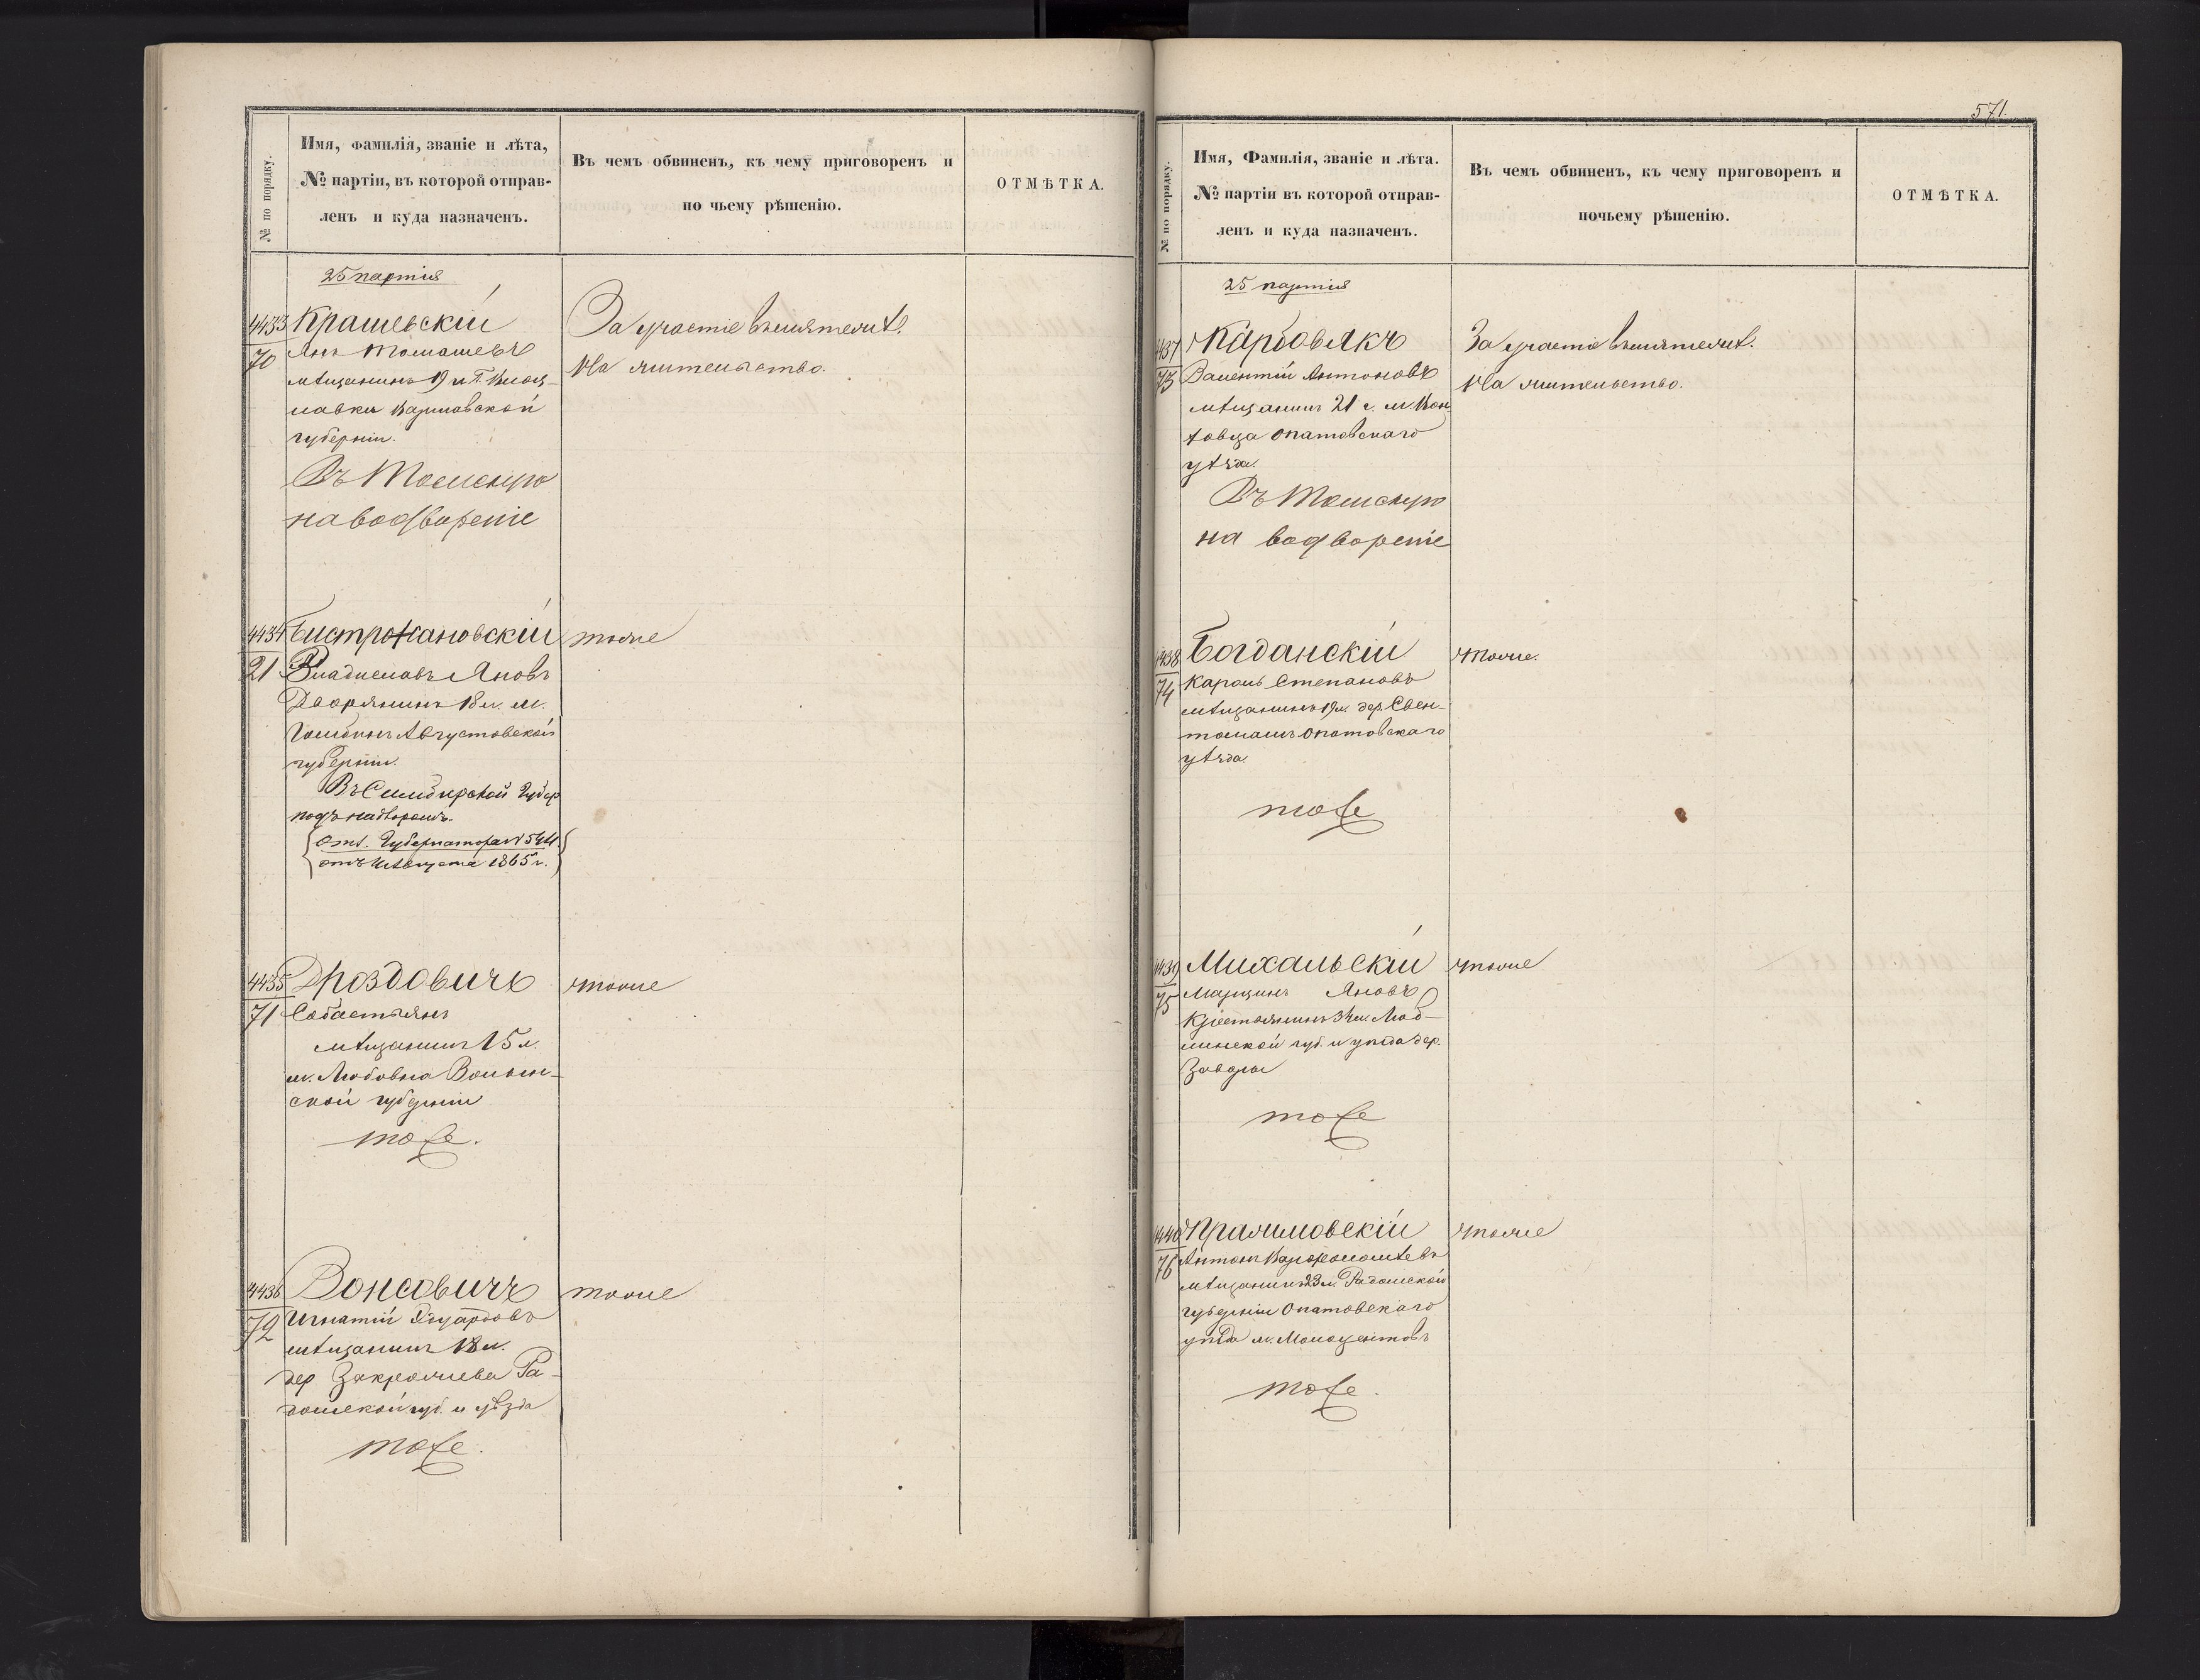 № по порядку.
Имя, Фамилія, званіе и лѣта,
№ партіи, въ которой отправ-
ленъ и куда назначенъ.
Въ чемъ обвиненъ, къ чему приговоренъ и
по чьему рѣшенію.
ОТМѢТКА.
25 партія
4433
70
Крашевскій
Янъ Томашевъ
мѣщанинъ 19 л. Г.
Варшавской
губерніи.
Въ Томскую
на водвореніе
За участіе въ мятежѣ.
На жительство.
4434
21
Бистржановскій
Владиславъ Яновъ
Дворянинъ 18 л. м.
Августовской
губерніи.
Въ Симбирской Губер
подъ надзоромъ.
Отв. Губернатора №
Августа 1865 г.
тоже
4435
71
Дроздовичъ
Собастьянъ
мѣщанинъ 15 л.
м. Любовна Волын-
ской губерніи
тоже.
тоже
4436
72
Вонсовичъ
Игнатій Эдуардовъ
мѣщанинъ 18 л.
дер Ра-
домской губ. и уѣзда
тоже.
тоже
571.
№ по порядку.
Имя, Фамилія, званіе и лѣта.
№ партіи въ которой отправ-
ленъ и куда назначенъ.
Въ чемъ обвиненъ, къ чему приговоренъ и
почьему рѣшенію.
ОТМѢТКА.
25 партія
4437
73
Карбовякъ
Валентій Антоновъ
мѣщанинъ 21 г. м.
Опатовскаго
уѣзда.
Въ Томскую
на водвореніе
За участіе въ мятежѣ.
На жительство.
4438
74
Богданскій
Кароль Степановъ
мѣщанинъ 19 л. дер. Свен-
томашъ Опатовскаго
уѣзда.
тоже
тоже.
4439
75
Михальскій
Марцинъ Яновъ
Крестьянинъ 34 л. Люб-
линской губ. и уѣзда дер.
тоже
тоже
4440
76
Антонъ
мѣщанинъ 23 л. Радомской
губерніи Опатовскаго
уѣзда м.
тоже.
тоже